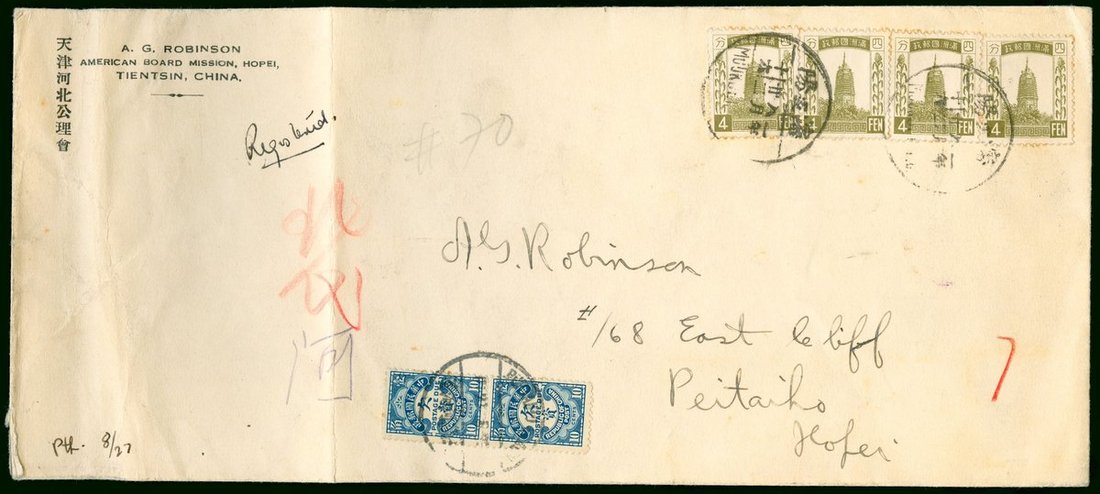 天津河北公理會
A. G. ROBINSON
AMERICAN BOARD MISSION, HOPEI,
TIENTSIN, CHINA.
Registered.
#70
滿洲國郵政 四分 4 FEN
滿洲國郵政 四分 4 FEN
滿洲國郵政 四分 4 FEN
滿洲國郵政 四分 4 FEN
北
河
A. G. Robinson
#168 East Cliff
Peitaiho
Hopei
7
POSTAGE DUE 10
POSTAGE DUE 10
Pth. 8/27